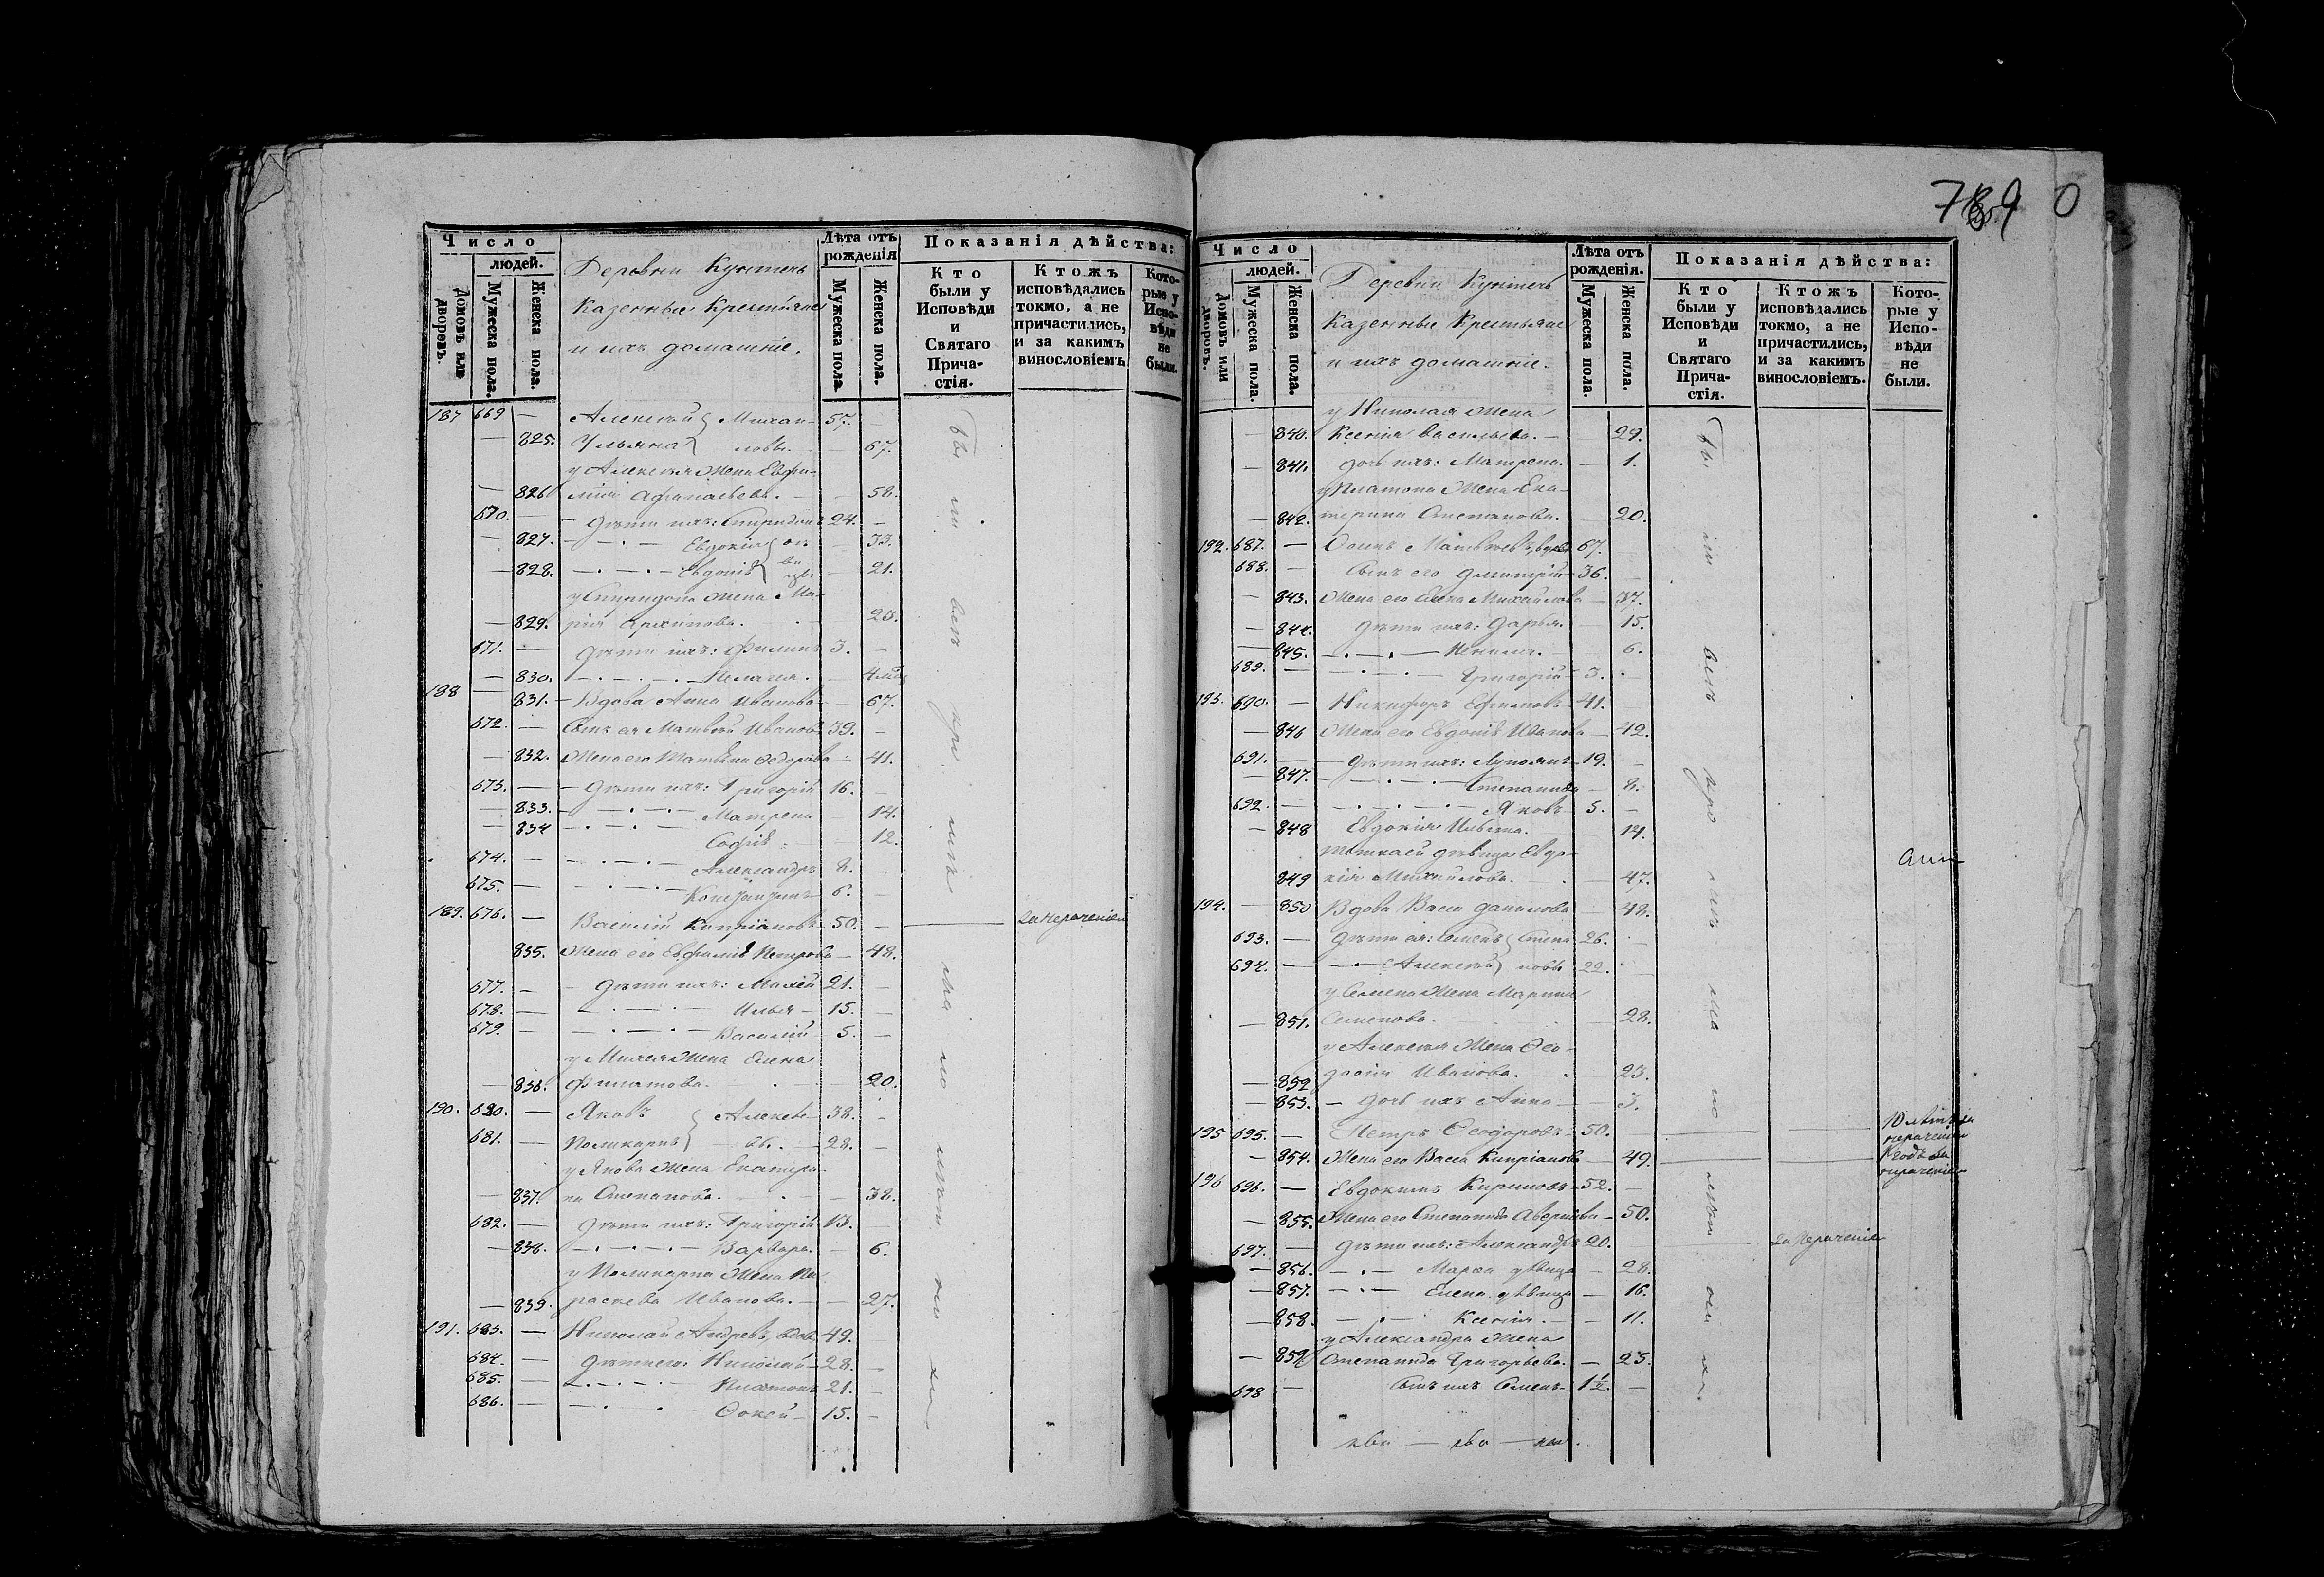 Число
людей.
Домовъ или дворовъ.
Мужеска пола.
Женска пола.
Деревни
Казенные Крестьяне
и ихъ домашніе.
Лѣта отъ рожденія
Мужеска пола.
Женска пола.
Показанія дѣйства:
Кто были у Исповѣди и Святаго Прича-стія.
Ктожъ исповѣдались токмо, а не причастились, и за какимъ винословіемъ
Кото-рые у Испо-вѣди не были.
187 669 — Алексѣй Михай- 57. —
— 825. Ульяна ловы. — 67.
у Алексѣя жена Евфи-
— 826 мія Афанасьева. — 58.
670. — дѣти ихъ: Спиридонъ 24. —
— 827. Евдокія — 33.
— 828. Евдокія — 21.
у Спиридона жена Ма-
— 829. рія Архипова. 25.
671. — дѣти ихъ: Филипъ 3. —
— 830. Пелагея. —
188 — 831. Вдова Анна Иванова — 67.
672. — Сынъ ея Матвѣй Ивановъ 39. —
— 832. Жена его Татьяна Ѳедорова — 41.
673. — дѣти ихъ: Григорій 16. —
— 833. Матрена — 14.
— 834 Софія — 12.
674. — Александръ 8. —
675. — Константинъ 6. —
189. 676. — Василій Кипріановъ 50. — за нераченіемъ
835. Жена его Евфимія Петрова — 48.
677. — дѣти ихъ: Михей 21. —
678. — Илья 15. —
679. — Василій 5. —
у Михея жена Елена
— 836. Филатова. 20.
190. 680. — Яковъ Алексѣе- 38. —
681. — Поликарпъ вы. 28. —
у Якова жена Екатери-
— 837. на Степанова. — 38.
682. — дѣти ихъ: Григорій 13. —
— 838. Варвара. — 6.
у Поликарпа жена Па-
— 839. раскева Иванова. — 27.
191. 683. — Николай Андреевъ, вдов. 49.
684. — дѣти его: Николай 28. —
685. — Платонъ 21. —
686. — 15. —
Были вси при
789 0
Число
людей.
Домовъ или дворовъ.
Мужеска пола.
Женска пола.
Деревни
Казенные Крестьяне
и ихъ домашніе.
Лѣта отъ рожденія.
Мужеска пола.
Женска пола.
Показанія дѣйства:
Кто были у Исповѣди и Святаго Прича-стія.
Ктожъ исповѣдались токмо, а не причастились, и за какимъ винословіемъ.
Кото-рые у Испо-вѣди не были.
у Николая жена
— 840. Ксенія Васильева. — 29.
— 841. дочь ихъ: Матрена. — 1.
у Платона жена Ека-
— 842. терина Степанова. — 20.
192. 687. — Матвѣевъ, вдовъ 67.
688. — Сынъ его Дмитрій 36.
— 843. Жена его Елена Михайлова — 37.
— 844. дѣти ихъ: Дарья. — 15.
— 845. — 6.
689. — Григорій 3.
193. 690. — Никифоръ Ефимовъ 41.
— 846 Жена его Евдокія Иванова — 42.
691. — дѣти ихъ: Лукоянъ 19. —
— 847. Степанида — 8.
692. — Яковъ 5. —
— 848 Евдокія Ильина. 14.
тетка ей дѣвица Евдо-
849 кія Михайлова. — 47.
194. — 850 Вдова Васса Данилова — 48.
693. — дѣти ея: Семенъ Степа- 26.
694. — Алексѣй новы 22.
у Семена жена Марина
— 851. Семенова. 28.
у Алексѣя жена Ѳео-
— 852 досія Иванова. 23.
— 853. дочь ихъ Анна 3.
195 695. — Петръ Ѳеодоровъ 50. — 10 лѣтъ за нераченіем
— 854. Жена его Васса Кипріанова — 49. — года за нераченіем
196 696. — Евдокимъ Кириловъ 52. —
— 855. Жена его Степанида — 50.
697. — дѣти ихъ: Александръ 20. — за нераченіем
— 856. Марѳа дѣвица — 28.
— 857. Елена дѣвица — 16.
— 858. Ксенія. — 11.
у Александра жена
— 859. Степанида Григорьева. — 25.
698 — Сынъ ихъ Семенъ 1½. —
Были вси при